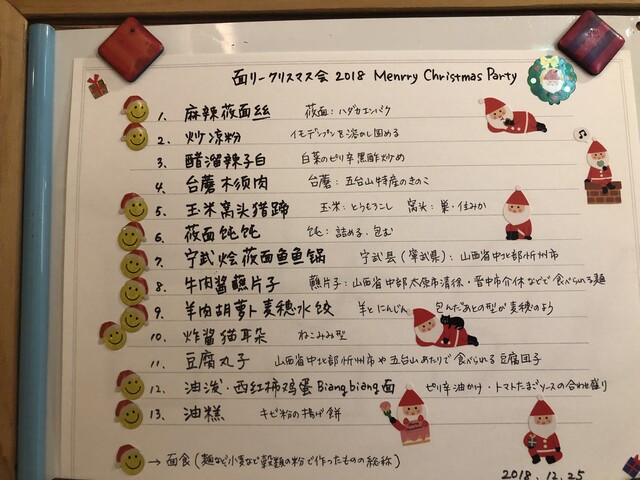 面リークリスマス会 2018 Menrry Christmas Party
1. 麻辣莜面絲 莜面:ハダカエンバク
2. 炒凉粉 イモデンプンを溶かし固める
3. 醋溜辣子白 白菜のピリ辛黒酢炒め
4. 台蘑木须肉 台蘑:五台山特産のきのこ
5. 玉米窝头猪蹄 玉米:とうもろこし 窝头:巣・住みか
6. 莜面饨饨 饨:詰める・包む
7. 宁武烩莜面鱼鱼锅 宁武県(寧武県):山西省中北部忻州市
8. 牛肉酱蘸片子 蘸片子:山西省中部太原市清徐・晋中市介休などで食べられる麺
9. 羊肉胡萝卜麦穗水饺 羊とにんじん 包んだあとの型が麦穂のよう
10. 炸酱猫耳朵 ねこみみ型
11. 豆腐丸子 山西省中北部忻州市や五台山あたりで食べられる豆腐団子
12. 油泼・西红柿鸡蛋Biangbiang面 ピリ辛油かけ・トマトたまごソースの合わせ盛り
13. 油糕 キビ粉の揚げ餅
→面食(麺など小麦など穀類の粉で作ったものの総称)
2018.12.25